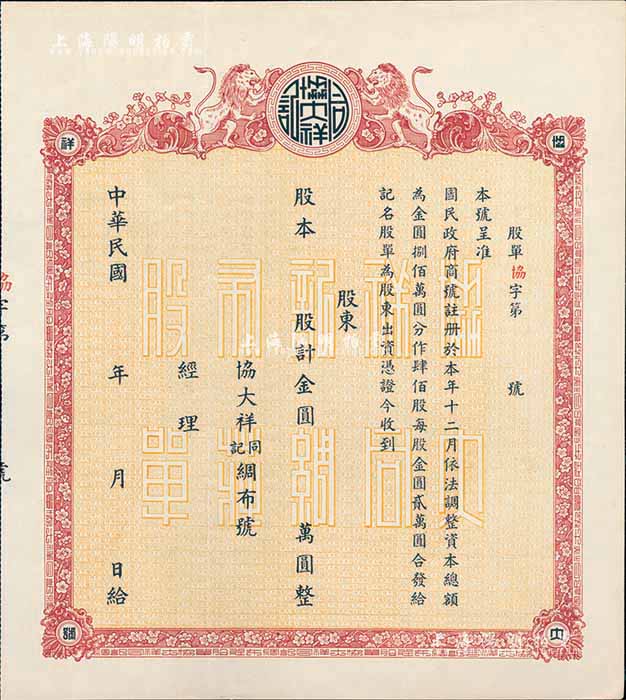 上海陽明拍賣
協大祥同記
祥
股單協字第 號
本號呈准
國民政府商號註册於本年十二月依法調整資本總額
為金圓捌佰萬圓分作肆佰股每股金圓貳萬圓合發給
記名股單為股東出資憑證今收到
股東
股本 股計金圓 萬圓整
協大祥同記綢布號
經理
中華民國 年 月 日給
協字第 號
協祥記有股
大同綢莊單
大
號
上海陽明拍賣
上海陽明拍賣